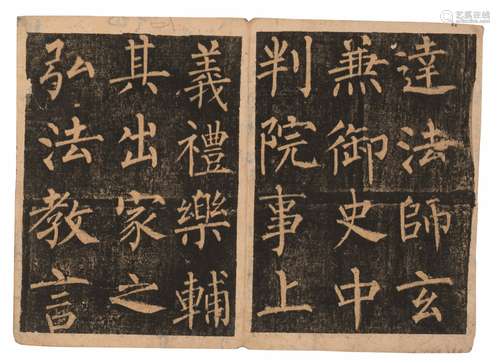 達法師玄
兼御史中
判院事上
義禮樂輔
其出家之
弘法教言